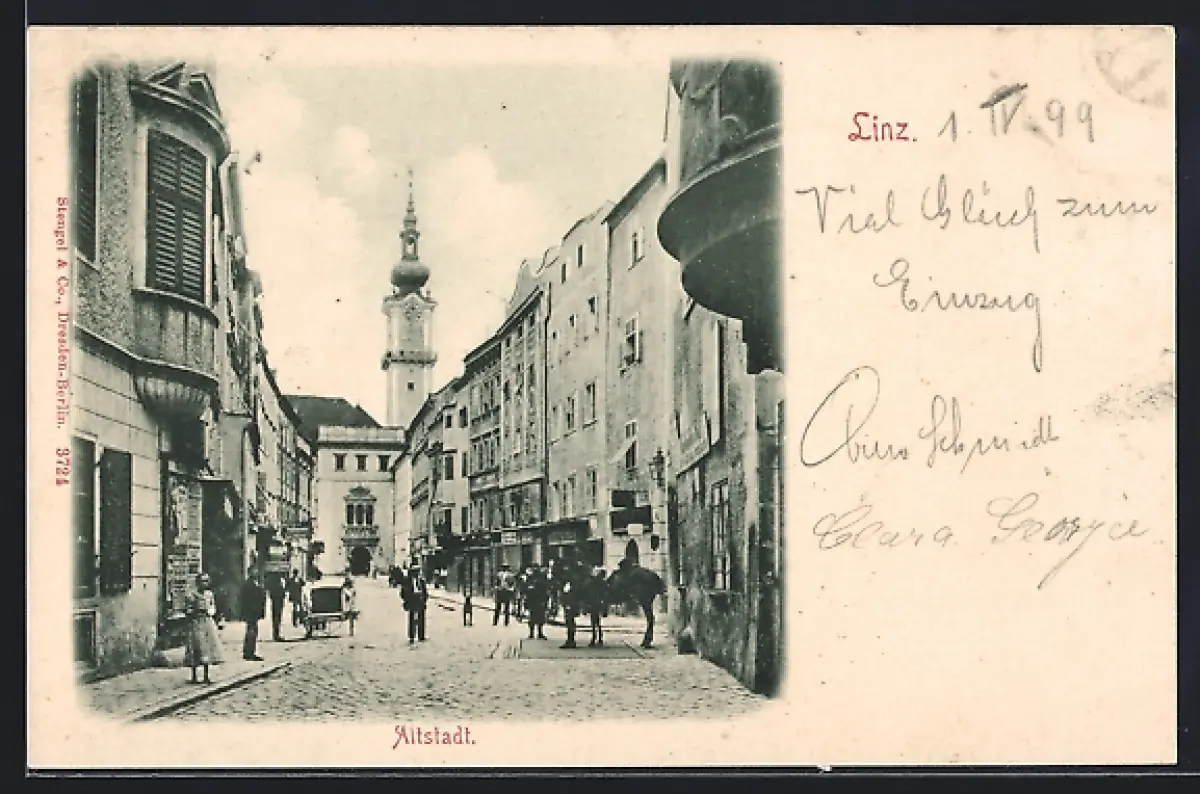 Stengel & Co., Dresden-Berlin. 3724
Linz. 1. IV. 99
Viel Glück zum
Einzug
Schmidt
Clara. George.
Altstadt.